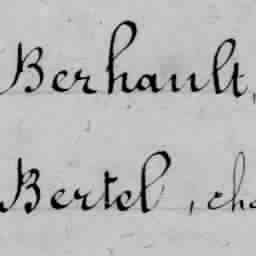 Berhault,
Bertel, che